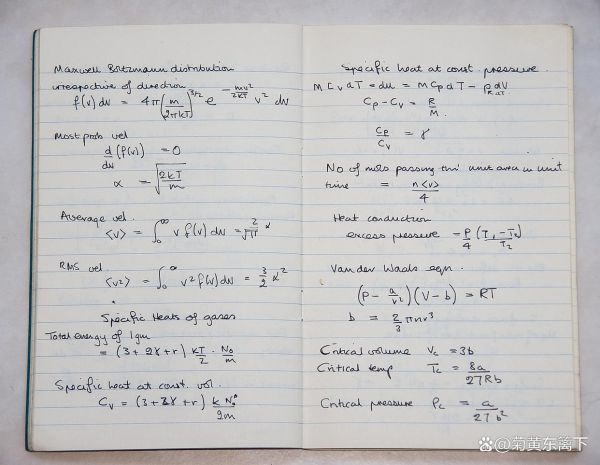 Maxwell Boltzmann distribution
irrespective of direction
f(v) dv = 4π (m/2πkT)^3/2 e^-mv²/2kT v² dv
Most prob vel
d/dv (f(v)) = 0
α = √(2kT/m)
Average vel.
<v> = ∫₀^∞ v f(v) dv = 2/√π α
RMS vel.
<v²> = ∫₀^∞ v² f(v) dv = 3/2 α²
Specific Heats of gases
Total energy of 1gm
= (3+2γ+r) kT/2 . N₀/m
Specific heat at const. vol.
Cv = (3+2γ+r) k N₀/2m
Specific heat at const. pressure.
M Cv dT = du = M Cp dT -
Cp - Cv = R/M.
Cp/Cv = γ
No of mols passing thro' unit area in unit
time = n<v>/4
Heat conduction
excess pressure - P/4 (T₁ - T₂)/T₂
Van der Waals eqn.
(P - a/v²)(V - b) = RT
b = 2/3 πnr³
Critical volume Vc = 3b
Critical temp Tc = 8a/27Rb
Critical pressure Pc = a/27b²
@菊黄东篱下